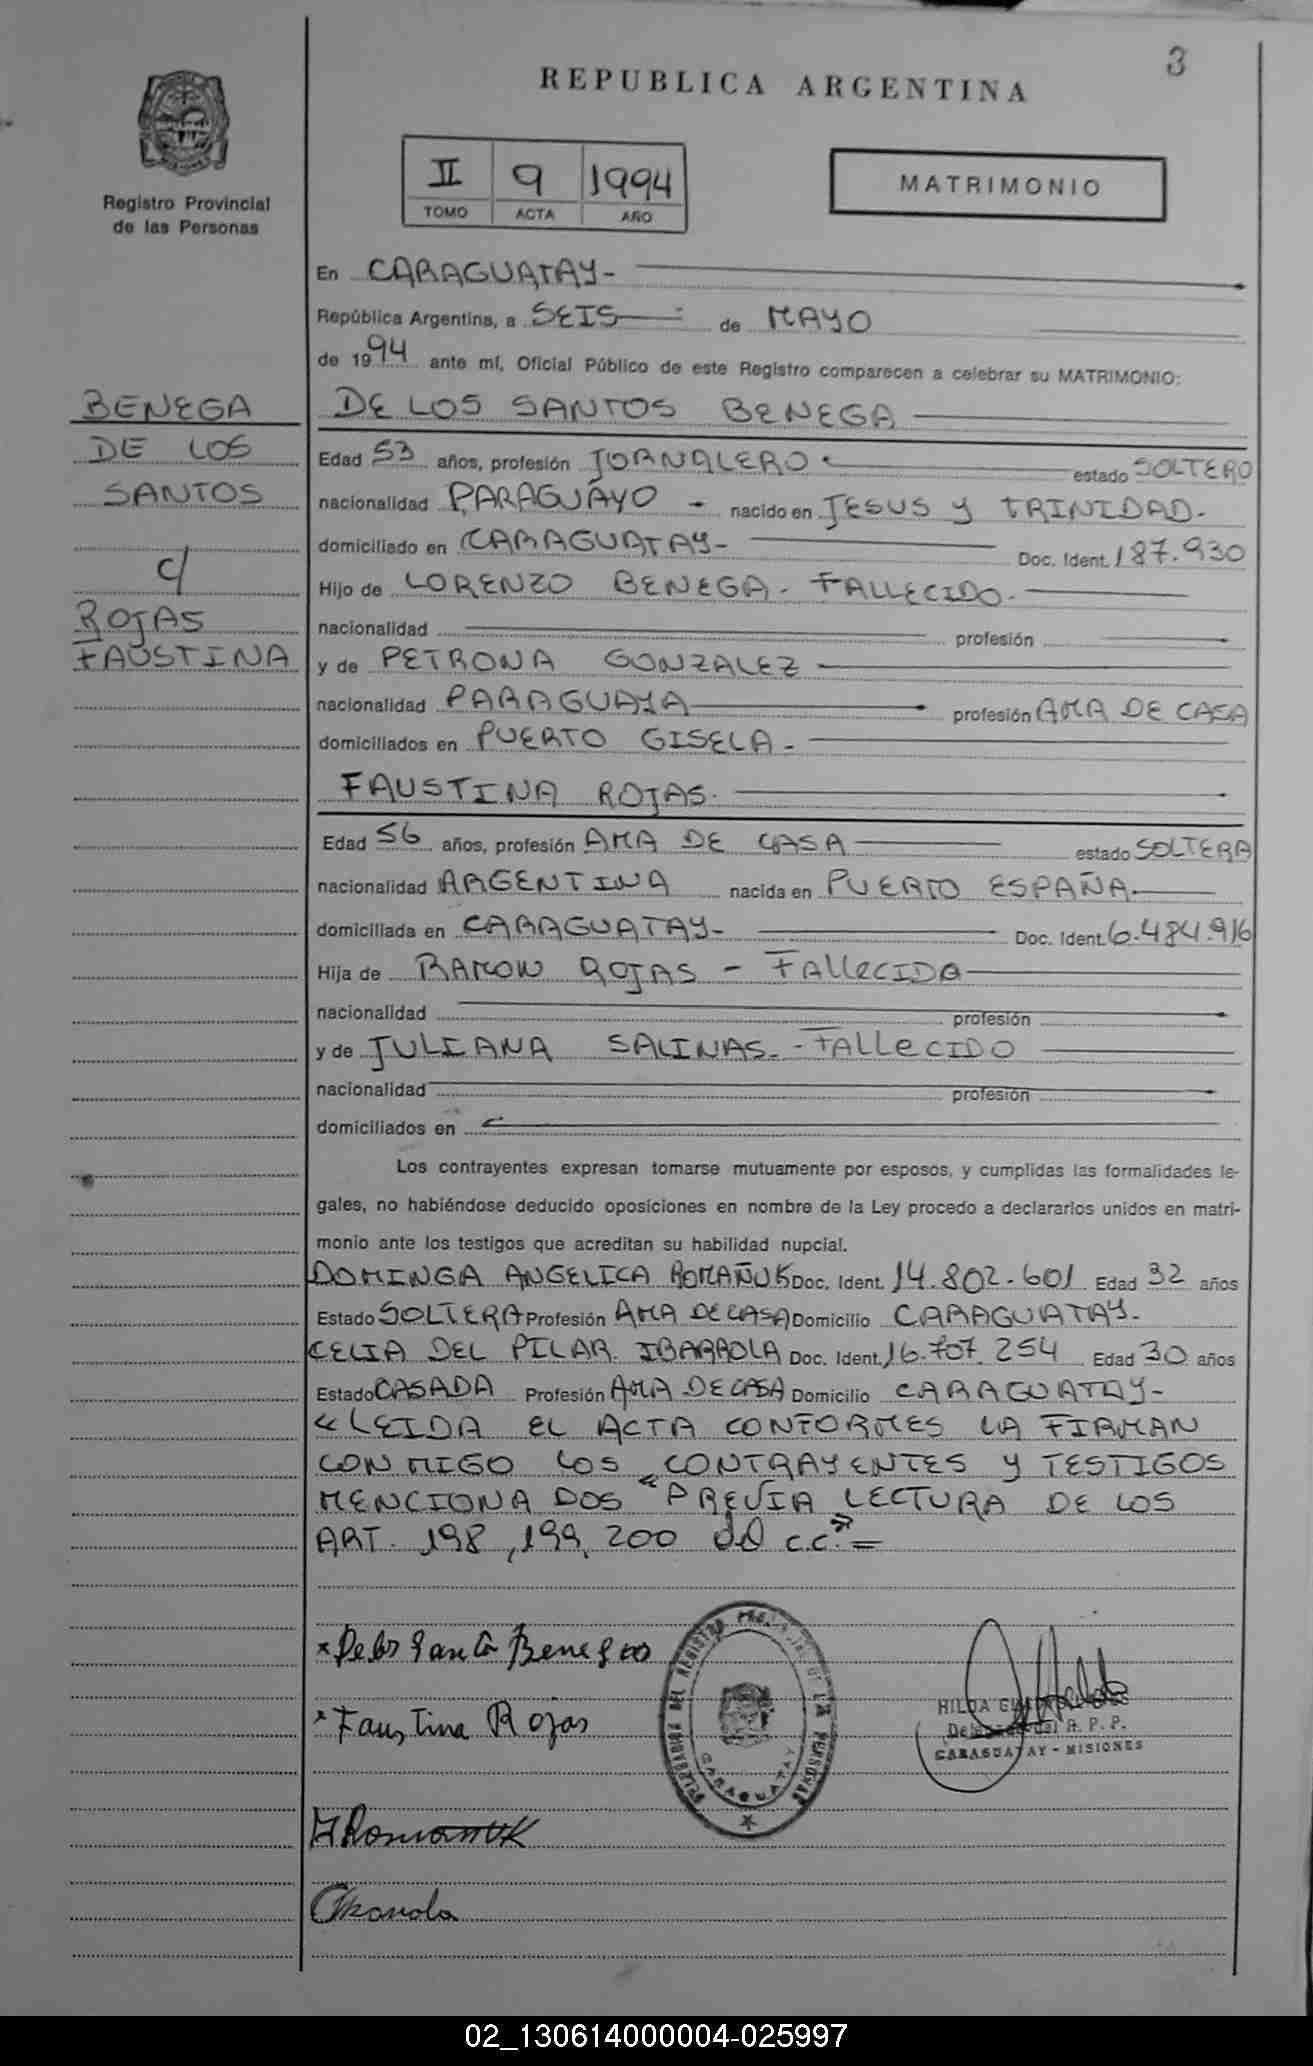 3
REPUBLICA ARGENTINA
Registro Provincial
de las Personas
II 9 1994
TOMO ACTA AÑO
MATRIMONIO
En CARAGUATAY-
República Argentina, a SEIS de MAYO
de 1994 ante mí, Oficial Público de este Registro comparecen a celebrar su MATRIMONIO:
BENEGA
DE LOS
SANTOS
c/
ROJAS
FAUSTINA
DE LOS SANTOS BENEGA
Edad 53 años, profesión JORNALERO estado SOLTERO
nacionalidad PARAGUAYO - nacido en JESUS Y TRINIDAD.
domiciliado en CARAGUATAY- Doc. Ident. 187.930
Hijo de LORENZO BENEGA - FALLECIDO.
nacionalidad profesión
y de PETRONA GONZALEZ
nacionalidad PARAGUAYA profesión AMA DE CASA
domiciliados en PUERTO GISELA -
FAUSTINA ROJAS.
Edad 56 años, profesión AMA DE CASA estado SOLTERA
nacionalidad ARGENTINA nacida en PUERTO ESPAÑA
domiciliada en CARAGUATAY- Doc. Ident. 6.484.916
Hija de RAMON ROJAS - FALLECIDO
nacionalidad profesión
y de JULIANA SALINAS. - FALLECIDO
nacionalidad profesión
domiciliados en
Los contrayentes expresan tomarse mutuamente por esposos, y cumplidas las formalidades le-
gales, no habiéndose deducido oposiciones en nombre de la Ley procedo a declararlos unidos en matri-
monio ante los testigos que acreditan su habilidad nupcial.
DOMINGA ANGELICA ROMAÑUK Doc. Ident. 14.802.601 Edad 32 años
Estado SOLTERA Profesión AMA DE CASA Domicilio CARAGUATAY-
CELIA DEL PILAR IBARROLA Doc. Ident. 16.707.254 Edad 30 años
Estado CASADA Profesión AMA DE CASA Domicilio CARAGUATAY-
«LEIDA EL ACTA CONFORMES LA FIRMAN
CONMIGO LOS «CONTRAYENTES Y TESTIGOS
MENCIONADOS "PREVIA LECTURA DE LOS
ART. 198, 199, 200 del c.c.» =
Faustina Rojas
HILDA
Del R. P. P.
CARAGUATAY - MISIONES
CARAGUATAY
02_130614000004-025997